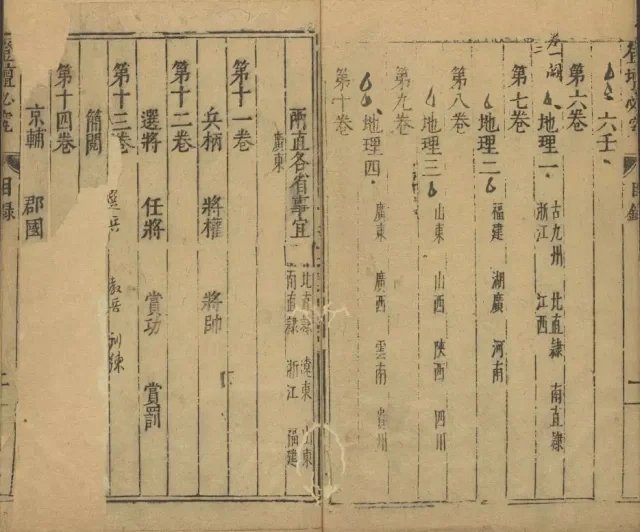 登壇必究 目錄 一
六壬
卷一闕
第六卷
地理一 古九州 北直隸 南直隸
浙江 江西
第七卷
地理二 福建 湖廣 河南
第八卷
地理三 山東 山西 陝西 四川
第九卷
地理四 廣東 廣西 雲南 貴州
第十卷
兩直各省事宜 北直隸 遼東 山東
南直隸 浙江 福建
廣東
第十一卷
兵柄 將權 將帥
第十二卷
選將 任將 賞功 賞罰
第十三卷
簡閱 選兵 教兵 訓練
第十四卷
京輔 郡國
登壇必究 目錄